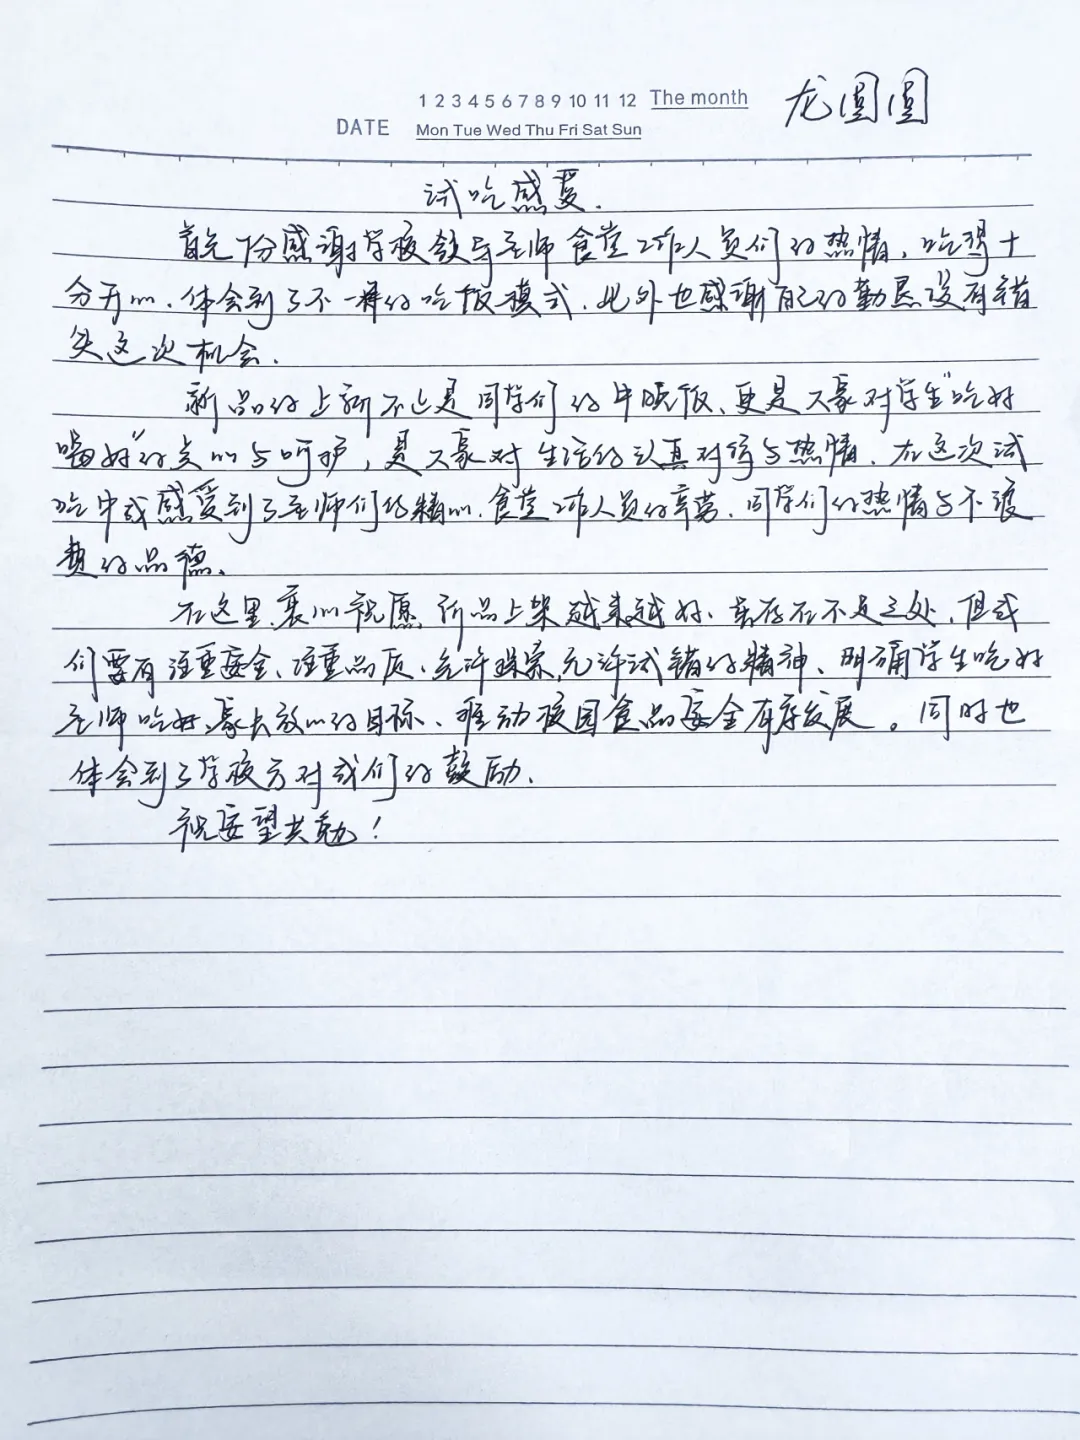 1 2 3 4 5 6 7 8 9 10 11 12 The month
龙圆圆
DATE Mon Tue Wed Thu Fri Sat Sun
试吃感受.
首先十份感谢学校领导老师食堂工作人员们的热情,吃得十
分开心.体会到了不一样的吃饭模式.此外也感谢自己的勤恳没有错
失这次机会.
新品的上新不止是同学们的中晚饭、更是大家对学生"吃好
喝好"的关心与呵护,是大家对生活的认真对待与热情.在这次试
吃中我感受到了老师们的精心.食堂工作人员的辛劳.同学们的热情与不浪
费的品德.
在这里衷心祝愿新品上架越来越好.虽存在不足之处.但我
们要有注重安全、注重品质、允许探索,允许试错的精神、明确学生吃好
老师吃好,家长放心的目标、推动校园食品安全有序发展。同时也
体会到了学校方对我们的鼓励.
祝安望共勉!